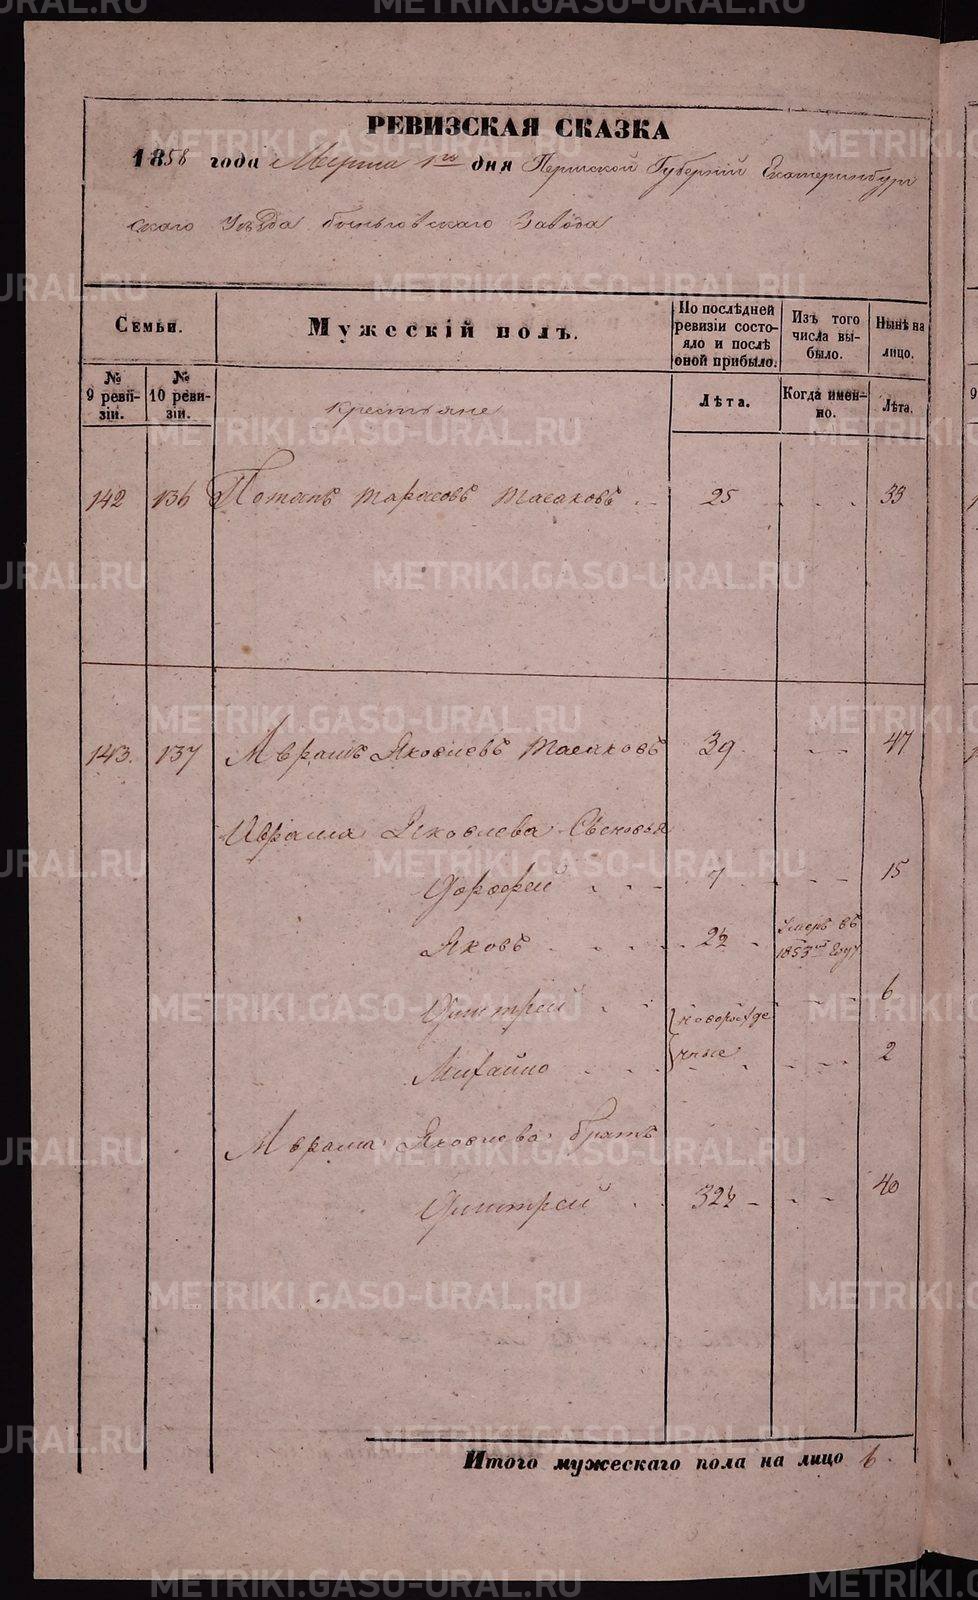 РЕВИЗСКАЯ СКАЗКА
1858 года Марта 1го дня Пермской Губерніи Екатеринбург
скаго Уѣзда быньговскаго Завода
Семьи.
Мужескій полъ.
По послѣдней ревизіи состояло и послѣ оной прибыло.
Изъ того числа выбыло.
Нынѣ на лицо.
№ 9 ревизіи.
№ 10 ревизіи.
Лѣта.
Когда именно.
Лѣта.
крестьяне
142 136 Потапъ Тарасовъ Масаковъ 25 33
143. 137 Аврамъ Яковлевъ Масаковъ 39 47
Аврама Яковлева Сыновья
Дорофей 7 15
Яковъ 2½ Умеръ въ 1853мъ году
Дмитрей новорожде 6
Михайло нные 2
Аврама Яковлева братъ
Дмитрей 32½ 40
Итого мужескаго пола на лицо 6.
METRIKI.GASO-URAL.RU